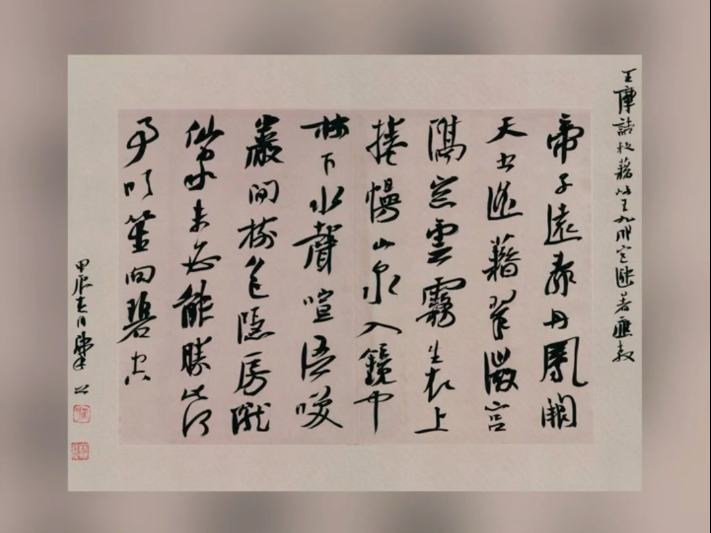 王摩詰敕藉岐王九成宮避暑應教
帝子遠辭丹鳳闕
天書遙藉翠微宮
隔窓雲霧生衣上
捲幔山泉入鏡中
林下水聲喧語笑
巖間樹色隱房櫳
仙家未必能勝此何
事吹笙向碧空
甲辰春月